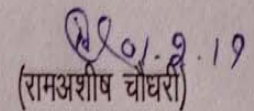 01.2.19
(रामअशीष चौधरी)